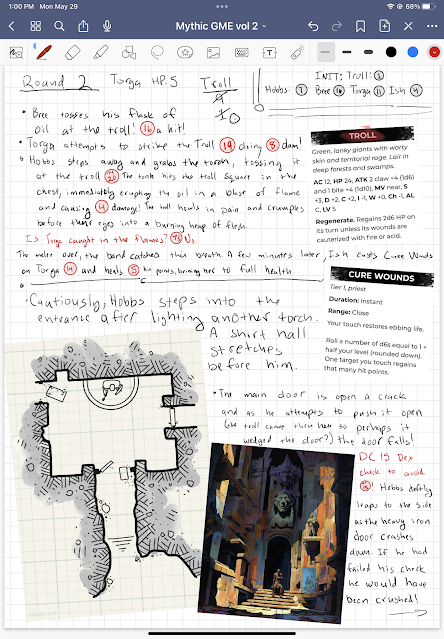 1:00 PM Mon May 29
68%
Mythic GME vol 2
Round 2 Torga HP. 5 Troll
INIT: Troll: 3
Hobbs: 7 Bree 16 Torga 11 Ish 4
• Bree tosses his flask of
oil at the troll! 16 a hit!
• Torga attempts to strike the Troll 19 doing 8 dam!
• Hobbs steps away and grabs the torch, tossing it
at the troll 20 The torch hits the troll square in the
chest, immediately erupting the oil in a blast of flame
and causing 4 damage! The troll howls in pain and crumples
before their eyes into a burning heap of flesh.
Is Torga caught in the flames? No.
The melee over, the band catches their breath. A few minutes later, Ish casts Cure Wounds
on Torga 14 and heals 5 hit points, brining her to full health
TROLL
Green, lanky giants with warty
skin and territorial rage. Lair in
deep forests and swamps.
AC 12, HP 24, ATK 2 claw +4 (1d6)
and 1 bite +4 (1d10), MV near, S
+3, D +2, C +2, I -1, W +0, Ch -1, AL
C, LV 5
Regenerate. Regains 2d6 HP on
its turn unless its wounds are
cauterized with fire or acid.
CURE WOUNDS
Tier 1, priest
Duration: Instant
Range: Close
Your touch restores ebbing life.
Roll a number of d6s equal to 1 +
half your level (rounded down).
One target you touch regains
that many hit points.
• Cautiously, Hobbs steps into the
entrance after lighting another torch.
A short hall
stretches
before him.
• The main door is open a crack
and as he attempts to push it open
(the troll came thru here so perhaps it
wedged the door?) the door falls!
DC 15 Dex
check to avoid
! Hobbs deftly
leaps to the side
as the heavy iron
door crashes
down. If he had
failed his check
he would have
been crushed!